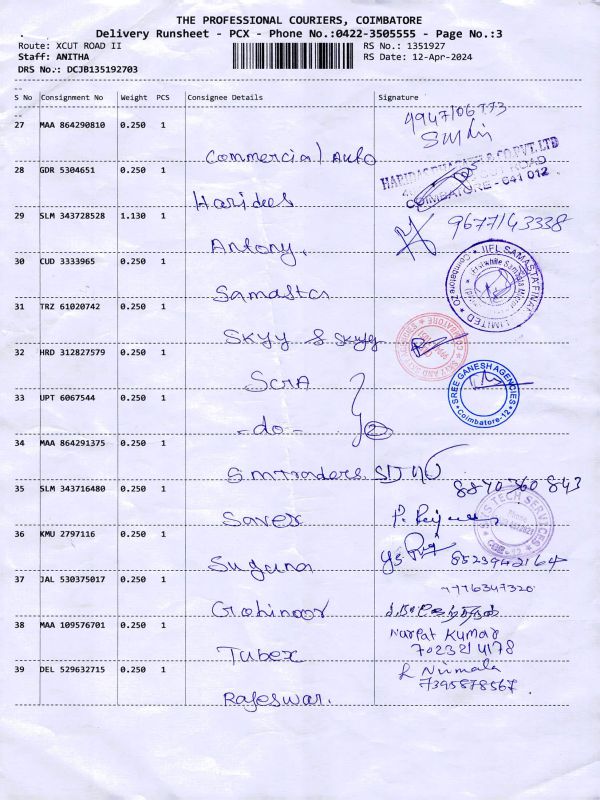 THE PROFESSIONAL COURIERS, COIMBATORE
Delivery Runsheet - PCX - Phone No.:0422-3505555 - Page No.:3
Route: XCUT ROAD II RS No.: 1351927
Staff: ANITHA RS Date: 12-Apr-2024
DRS No.: DCJB135192703
S No Consignment No Weight PCS Consignee Details Signature
27 MAA 864290810 0.250 1
Commercial Auto
28 GDR 5304651 0.250 1
COIMBATORE - 641 012
Haridees
29 SLM 343728528 1.130 1 9677143338
Antony.
30 CUD 3333965 0.250 1
Samasta
31 TRZ 61020742 0.250 1
SKYY & Skyy
32 HRD 312827579 0.250 1
SCRA
SREE GANESH AGENCIES
Coimbatore-12
33 UPT 6067544 0.250 1
-do-
34 MAA 864291375 0.250 1
S.M Traders
35 SLM 343716480 0.250 1 8870360843
Savex
36 KMU 2797116 0.250 1
Suguna 8523942164
37 JAL 530375017 0.250 1 7776347320
Gohinoor
38 MAA 109576701 0.250 1 Narpat Kumar
7023214178
Tubex
39 DEL 529632715 0.250 1 R Nirmala
7395878567
Rajeswar.